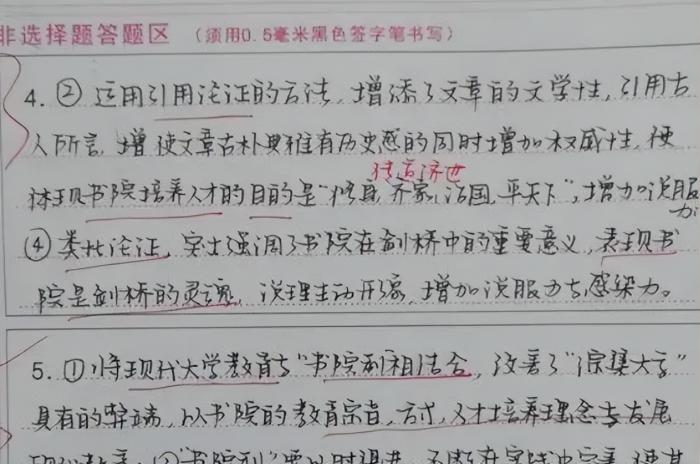 非选择题答题区 (须用0.5毫米黑色签字笔书写)
4. ② 运用引用论证的方法, 增添了文章的文学性, 引用古
人所言, 增使文章古朴典雅有历史感的同时增加权威性, 使
传言济世
体现书院培养人才的目的是“修身、齐家、治国、平天下”, 增加说服
力
④ 类比论证, 突出强调了书院在剑桥中的重要意义, 表现书
院是剑桥的灵魂, 说理生动形象, 增加说服力与感染力。
5. ① 将现代大学教育与“书院制相结合, 改善了“大学”
具有的弊端, 从书院的教育宗旨, 方式, 人才培养理念与发展
现代教育, ②“书院制”要与时俱进, 不断在实践中完善, 使其